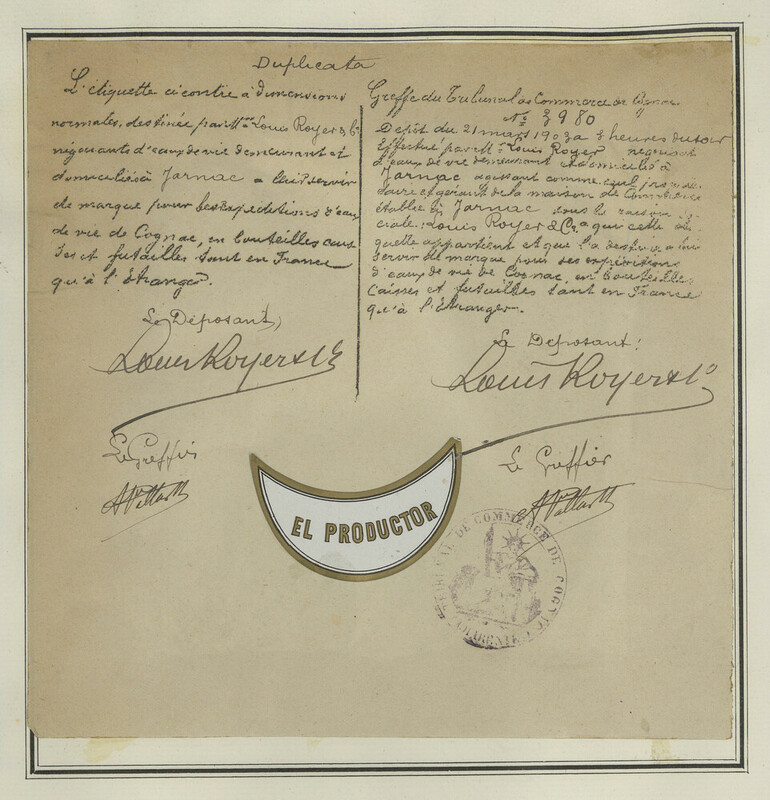 Duplicata
L'étiquette ci contre à dimensions
normales, destinée par Mr Louis Royer & Cº
négociants d'eaux de vie demeurant et
domicilié à Jarnac à leur servir
de marque pour les expéditions d'eaux
de vie de Cognac, en bouteilles cais
ses et futailles tant en France
qu'à l'Etranger.
Le Déposant,
Louis Royer & Cº
Le Greffier
Greffe du Tribunal de Commerce de Cognac
Nº 3980
Dépôt du 21 mars 1903 à 3 heures du soir
Effectué par Mr Louis Royer négociant
d'eaux de vie demeurant et domicilié à
Jarnac agissant comme seul proprié
taire et gérant de la maison de Commerce
établie à Jarnac sous la raison so
ciale: Louis Royer & Cº, à qui cette éti
quette appartient et que l'a destinée à lui
servir de marque pour ses expéditions
d'eaux de vie de Cognac, en bouteilles
caisses et futailles tant en France
qu'à l'Etranger.
Le Déposant:
Louis Royer & Cº
Le Greffier
EL PRODUCTOR
TRIBUNAL DE COMMERCE DE COGNAC
(CHARENTE)